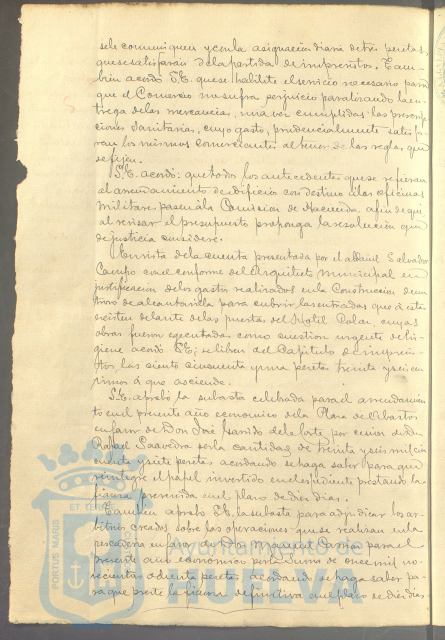 se le comuniquen y con la asignacion diaria de tres pesetas,
que se satisfarán de la partida de imprevistos. Tam-
bien acordó S.E. que se habilite el servicio necesario para
que el Comercio no sufra perjuicio paralizando la en-
trega de las mercancias, una vez cumplidas las prescrip-
ciones Sanitarias, cuyo gasto, prudencialmente satisfa-
ran los mismos comerciantes al tenor de las reglas que
se fijen.
S.E. acordó: que todos los antecedentes que se refieran
al arrendamiento de edificio con destino á las oficinas
Militares pasen á la Comision de Hacienda, á fin de que
al revisar el presupuesto proponga la resolucion que
de justicia considere.
En vista de la cuenta presentada por el albañil Salvador
Campo con el conforme del Arquitecto Municipal en
justificacion de los gastos realizados en la Construccion de un
trozo de alcantarilla para cubrir las entradas que á este
existen delante de las puertas del Hotel Colon, cuyas
obras fueron ejecutadas como cuestion urgente de hi-
giene acordó S.E; se libren del Capitulo de imprevis-
tos las ciento cincuenta y una pesetas treinta y seis cen-
timos á que asciende.
S.E. aprobó la subasta celebrada para el arrendamien-
to en el presente año economico de la Plaza de Abastos
en favor de Don José Garrido de la Corte por cesion de Don
Rafael Saavedra por la cantidad de treinta y seis mil cin
cuenta y siete pesetas, acordando se haga saber para que
reintegre el papel invertido en el espediente prestando la
fianza prevenida en el plazo de diez dias.
Tambien aprobó S.E. la subasta para adjudicar los ar-
bitrios creados sobre las operaciones que se realizan en la
pescaderia en favor de Don Manuel Garcia para el
presente año economico por la suma de once mil no-
vecientas ochenta pesetas, acordando se haga saber pa-
ra que preste la fianza definitiva en el plazo de diez dias
PORTUS MARIS
ET TERRE
Ayuntamiento de
HUELVA